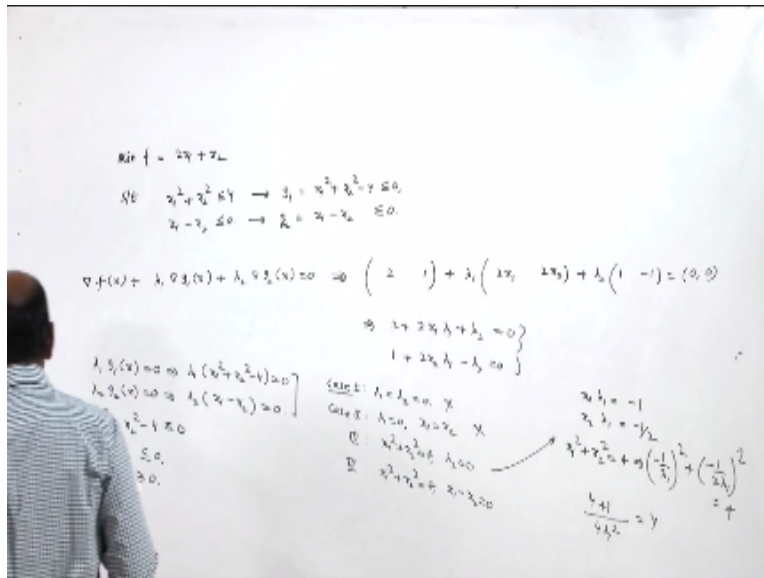 min f = 2x₁ + x₂
s/t x₁² + x₂² ≤ 4 → g₁ = x₁² + x₂² - 4 ≤ 0,
x₁ - x₂ ≤ 0 → g₂ = x₁ - x₂ ≤ 0.
∇f(x) + λ₁ ∇g₁(x) + λ₂ ∇g₂(x) = 0 ⇒ (2 1) + λ₁ (2x₁ 2x₂) + λ₂ (1 -1) = (0, 0)
⇒ 2 + 2x₁ λ₁ + λ₂ = 0 }
1 + 2x₂ λ₁ - λ₂ = 0 }
λ₁ g₁(x) = 0 ⇒ λ₁ (x₁² + x₂² - 4) = 0
λ₂ g₂(x) = 0 ⇒ λ₂ (x₁ - x₂) = 0. ]
x₂² - 4 ≤ 0
≤ 0,
≥ 0.
Case I: λ₁ = λ₂ = 0, X
Case II: λ₁ = 0, x₁ = x₂ X
III: x₁² + x₂² = 4, λ₂ = 0
IV: x₁² + x₂² = 4, x₁ - x₂ = 0
x₁ λ₁ = -1
x₂ λ₁ = -1/2
x₁² + x₂² = 4 ⇒ (-1/λ₁)² + (-1/2λ₁)²
= 4
4+1/4λ₁² = 4